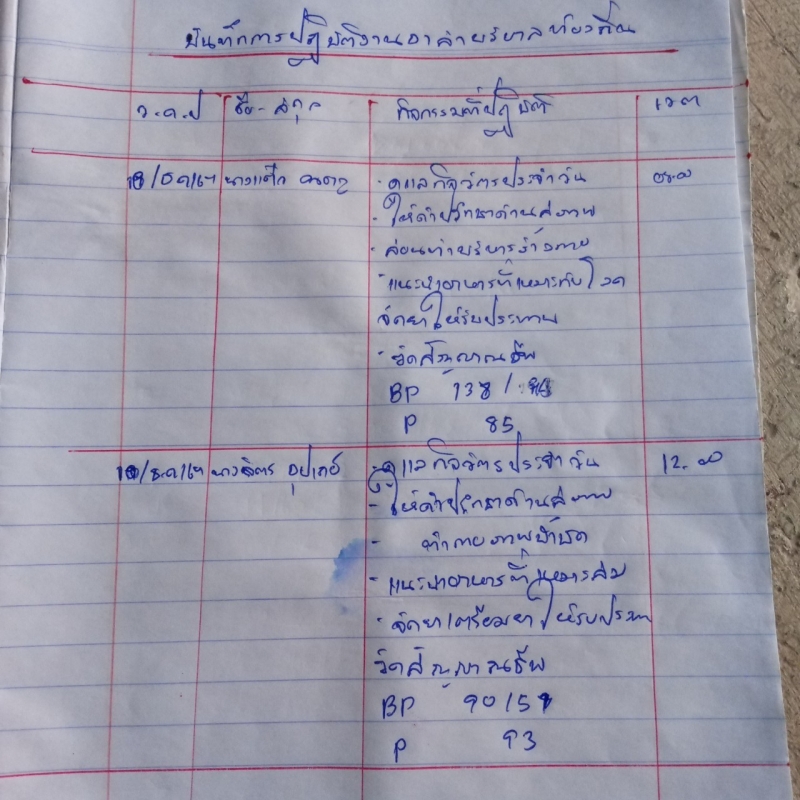 บันทึกการปฏิบัติงานอาสาบริบาลท้องถิ่น
ว.ด.ป ชื่อ-สกุล กิจกรรมที่ปฏิบัติ เวลา
นางแต๊ก
- ดูแลกิจวัตรประจำวัน
- ให้คำปรึกษาด้านสุขภาพ
- สอนท่าบริหารร่างกาย
- แนะนำอาหารที่เหมาะกับโรค
จัดยาให้รับประทาน
- วัดสัญญาณชีพ
BP 138/
P 85
นางจิตร
- ดูแลกิจวัตรประจำวัน 12.00
- ให้คำปรึกษาด้านสุขภาพ
- ทำกายภาพบำบัด
- แนะนำอาหารที่เหมาะสม
- จัดยา/เตรียมยาให้รับประทาน
วัดสัญญาณชีพ
BP 90/59
P 93